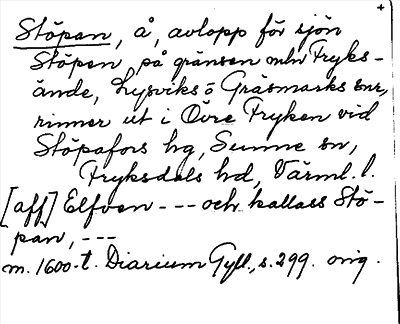 Stöpan, å, avlopp för sjön
Stöpen på gränsen mln Fryks-
ände, Lysviks o Gräsmarks snr,
rinner ut i Övre Fryken vid
Stöpafors hg, Sunne sn,
Fryksdals hd, Värml. l.
[aff] Elfven --- och kallass Stö-
pan, ---
m. 1600-t. Diarium Gyll., s. 299. orig.